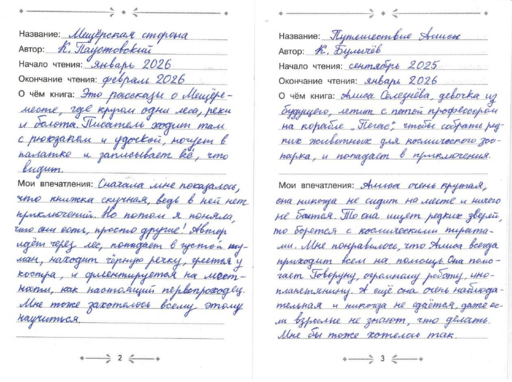 Название: Мещёрская сторона
Автор: К. Паустовский
Начало чтения: январь 2026
Окончание чтения: февраль 2026
О чём книга: Это рассказы о Мещёре-
месте, где кругом одни леса, реки
и болота. Писатель ходит там
с рюкзаком и удочкой, ночует в
палатке и записывает всё, что
видит.
Мои впечатления: Сначала мне показалось,
что книжка скучная, ведь в ней нет
приключений. Но потом я поняла,
что они есть, просто другие! Автор
идёт через лес, попадает в густой ту-
ман, находит чёрную речку, греется у
костра, и ориентируется на мест-
ности, как настоящий первопроходец.
Мне тоже захотелось всему этому
научиться.
2
Название: Путешествие Алисы
Автор: К. Булычёв
Начало чтения: сентябрь 2025
Окончание чтения: январь 2026
О чём книга: Алиса Селезнёва, девочка из
будущего, летит с папой профессором
на корабле "Пегас", чтобы собрать ред-
ких животных для космического зоо-
парка, и попадает в приключения.
Мои впечатления: Алиса очень крутая,
она никогда не сидит на месте и ничего
не боится. То она ищет редких зверей,
то борется с космическими пирата-
ми. Мне понравилось, что Алиса всегда
приходит всем на помощь. Она помо-
гает Говоруну, огромному роботу, ино-
планетянину. А ещё она очень наблюда-
тельная и никогда не сдаётся, даже ес-
ли взрослые не знают, что делать.
Мне бы тоже хотелось так.
3